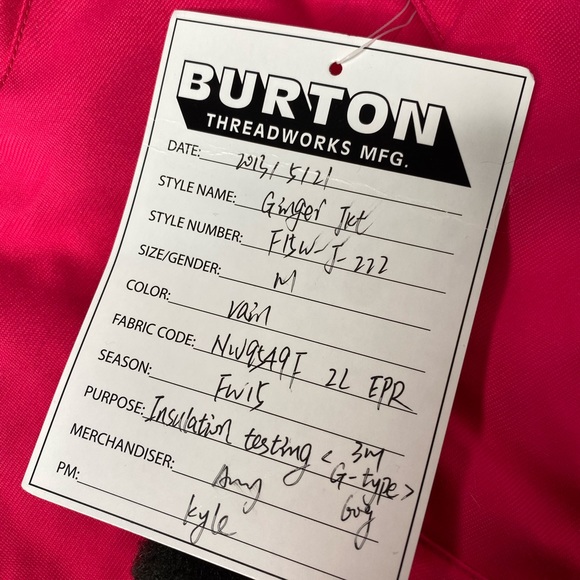 BURTON
THREADWORKS MFG.
DATE: 2013/5/21
STYLE NAME: Ginger Jkt
STYLE NUMBER: F15W-J-222
SIZE/GENDER: M
COLOR: vain
FABRIC CODE: NW9549F 2L EPR
SEASON: FW15
PURPOSE: Insulation testing < 3M
G-type >
MERCHANDISER: Amy 60g
PM: Kyle